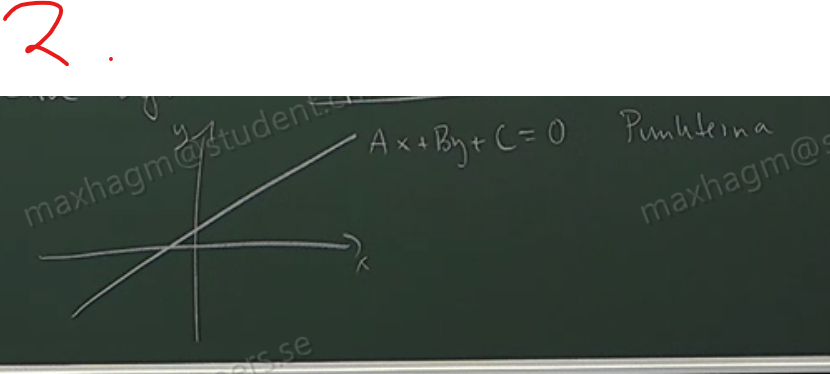 2.
y
Ax+By+C=0 Punkterna
x
maxhagm@student.c
maxhagm@s
ers.se